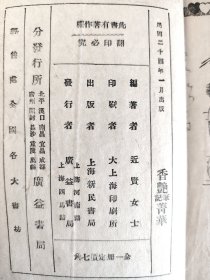 民國二十四年一月出版
香艷
筆記
菁華
全一冊定價七角
編著者 近賢女士
印刷者 大上海印刷所
出版者 上海新民書局
發行者 廣益書局
上海河南路
上海四馬路
此書有著作權
翻印必究
分發行所
北平 漢口 南昌 宜昌 成都
廣州 開封 長沙 重慶 萬縣
廣益書局
郵售處全國各大書坊